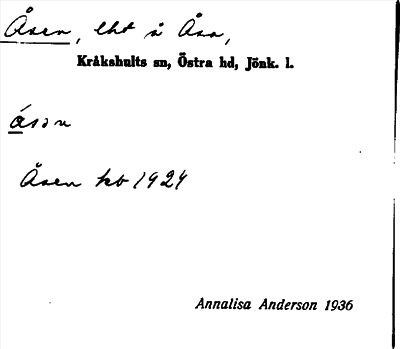 Åsen, lht å Åsa,
Kråkshults sn, Östra hd, Jönk. l.
ǻsən
Åsen kb 1924
Annalisa Anderson 1936